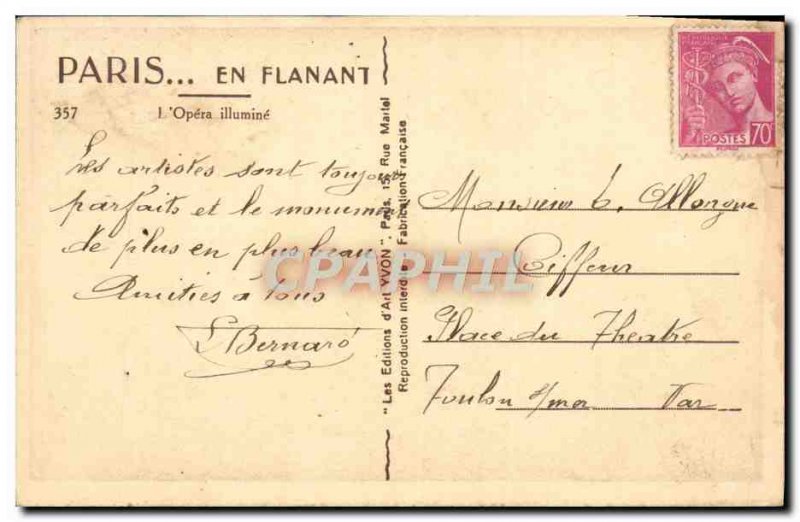 PARIS... EN FLANANT
357 L'Opéra illuminé
Les artistes sont toujours
parfaits et le monument
de plus en plus beau
Amitiés à tous
L Bernard
"Les Editions d'Art YVON". Paris, 15, Rue Martel
Reproduction interdite Fabrication Française
REPUBLIQUE FRANÇAISE
POSTES 70c
Monsieur E. Allongue
Coiffeur
Place du Théatre
Toulon s/mer Var
CPAPHIL